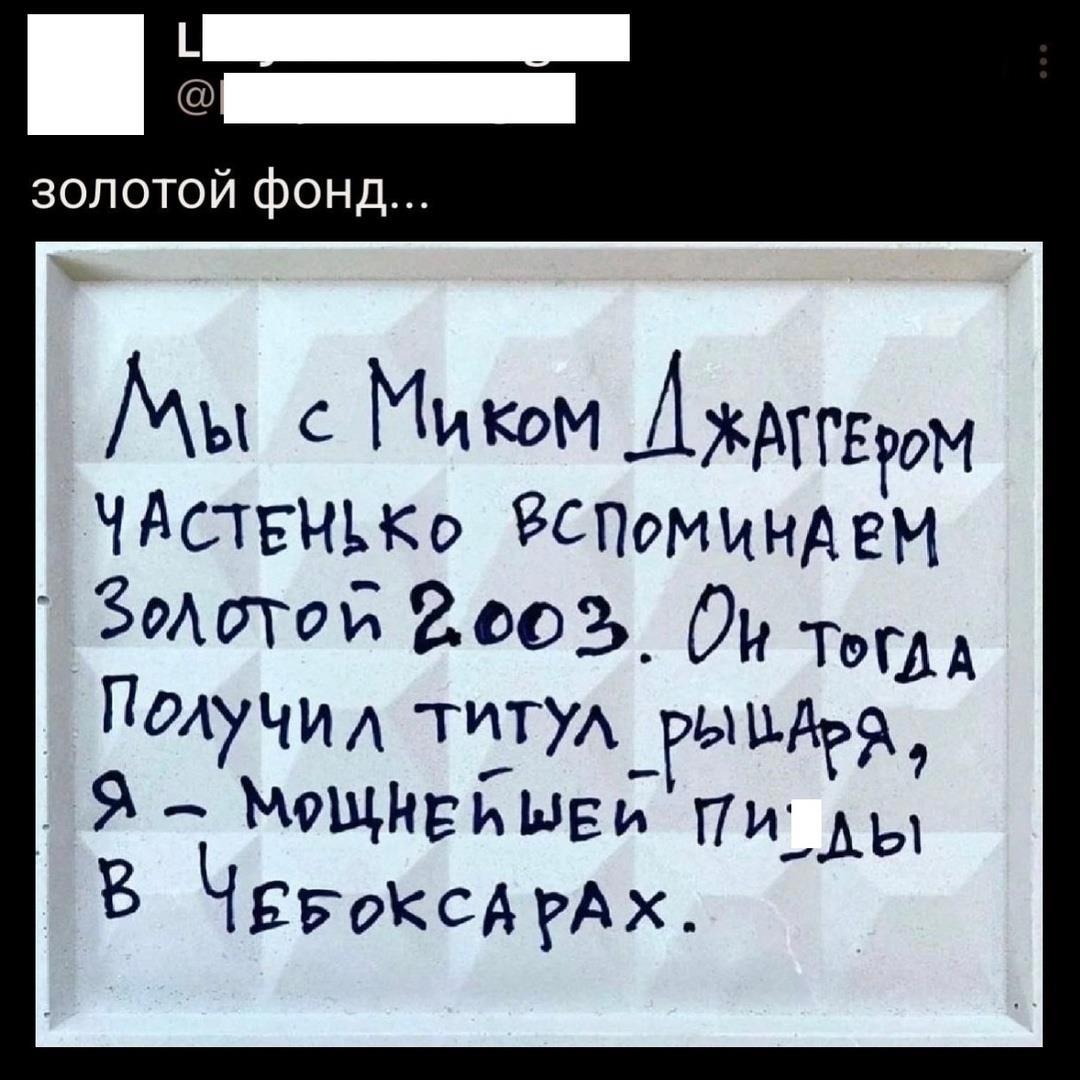 L
@
золотой фонд...
Мы с Миком Джаггером
частенько вспоминаем
Золотой 2003. Он тогда
Получил титул рыцаря,
Я - мощнейшей пи дды
В Чебоксарах.